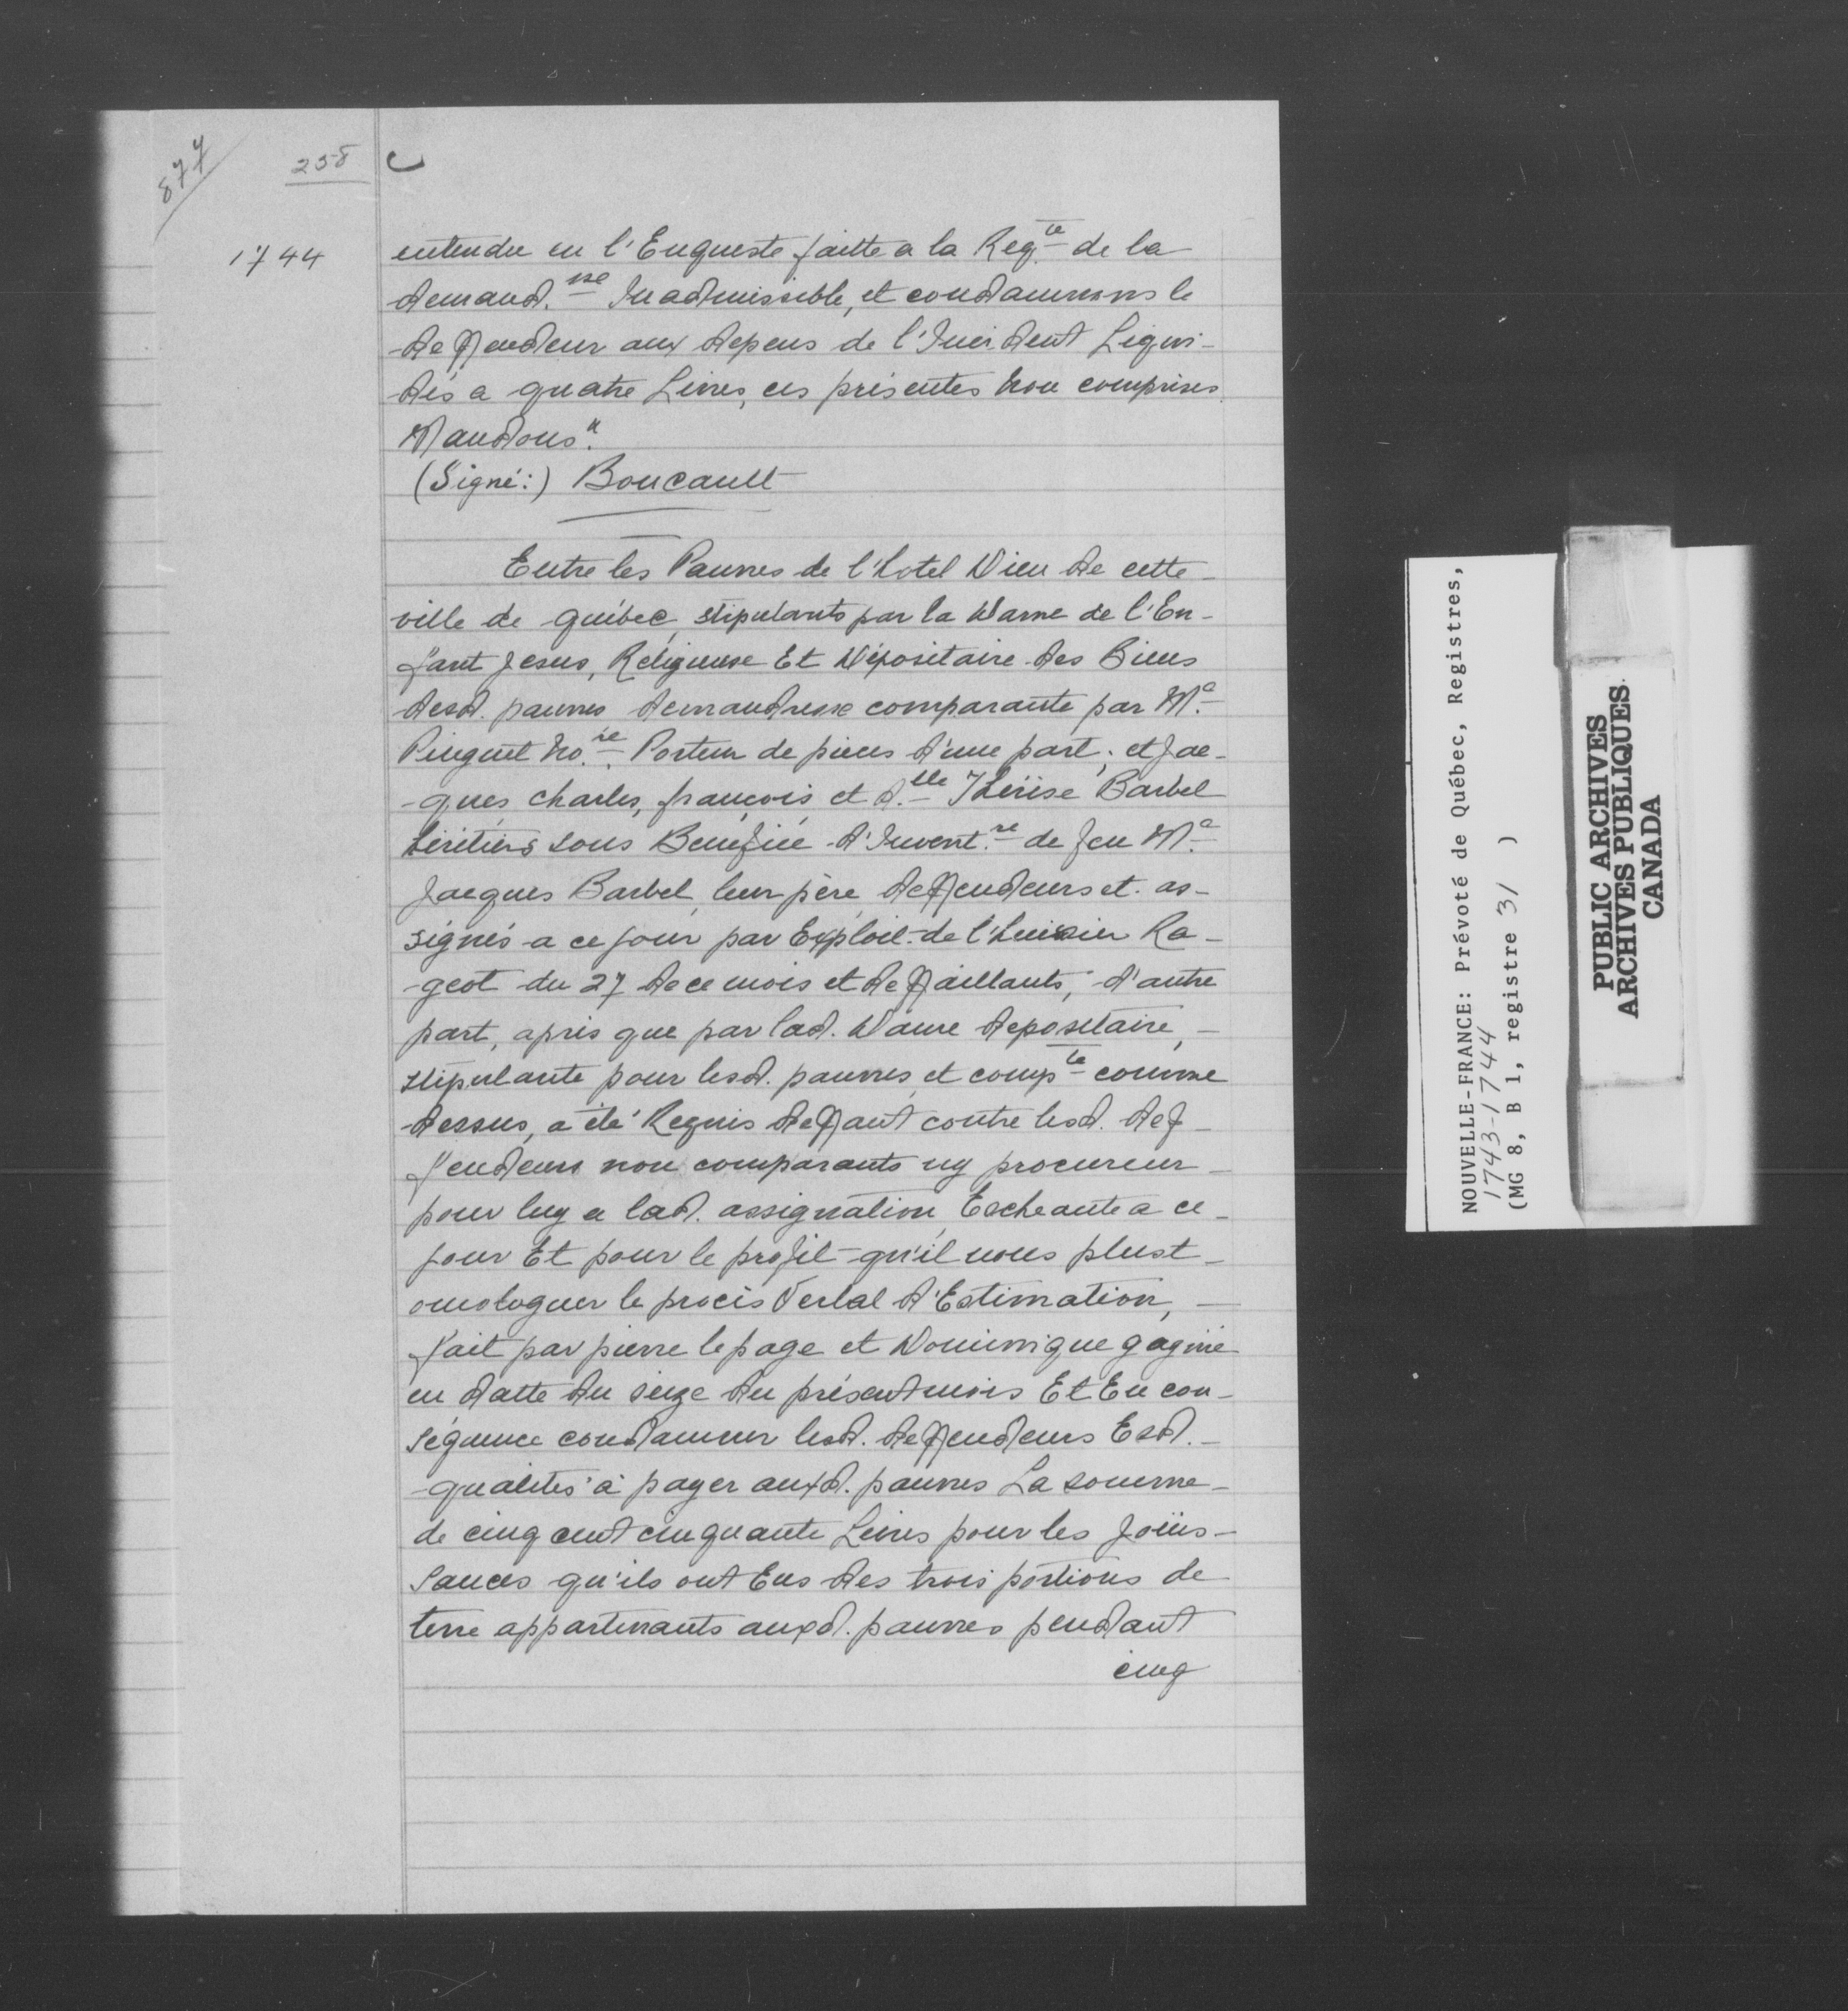 877
258
1744
entendu en l'Enqueste faitte a la Reqte de la
demand.sse Inadmissible, et condamnons le
deffendeur aux depens de l'Incident Liqui-
dés a quatre Livres, ces présentes non comprises
Mandons".
(Signé:) Boucault
Entre les Pauvres de l'hotel Dieu de cette
ville de québec, stipulants par la Dame de l'En-
fant Jesus, Religieuse Et Dépositaire des Biens
desd. pauvres demandresse comparante par Me
Pinguet No.re Porteur de pieces d'une part; et Jac-
ques, charles, françois, et d.lle Thérèse Barbel
héritiers sous Benefice d'Invent.re de feu Me
Jacques Barbel, leur père, deffendeurs et as-
signés a ce jour par Exploit de l'huissier Ra-
geot du 27 de ce mois et deffaillants, d'autre
part, après que par lad. Dame depositaire,
stipulante pour lesd. pauvres, et compte comme
dessus, a été Requis deffaut contre lesd. def-
fendeurs non comparants ny procureur
pour luy a lad. assignation, Escheante a ce
jour Et pour le profit qu'il nous plust
omologuer le procès Verbal d'Estimation,
fait par pierre lepage et Dominique gagnié
en datte du seize du présent mois Et En con-
séquence condamner lesd. deffendeurs Esd.
qualités à payer auxd. pauvres La somme
de cinq cent cinquante Livres pour les Joüis-
sances qu'ils ont Eus des trois portions de
terre appartenants auxd. pauvres pendant
cinq
NOUVELLE-FRANCE: Prévôté de Québec, Registres,
1743-1744
(MG 8, B 1, registre 31 )
PUBLIC ARCHIVES
ARCHIVES PUBLIQUES
CANADA